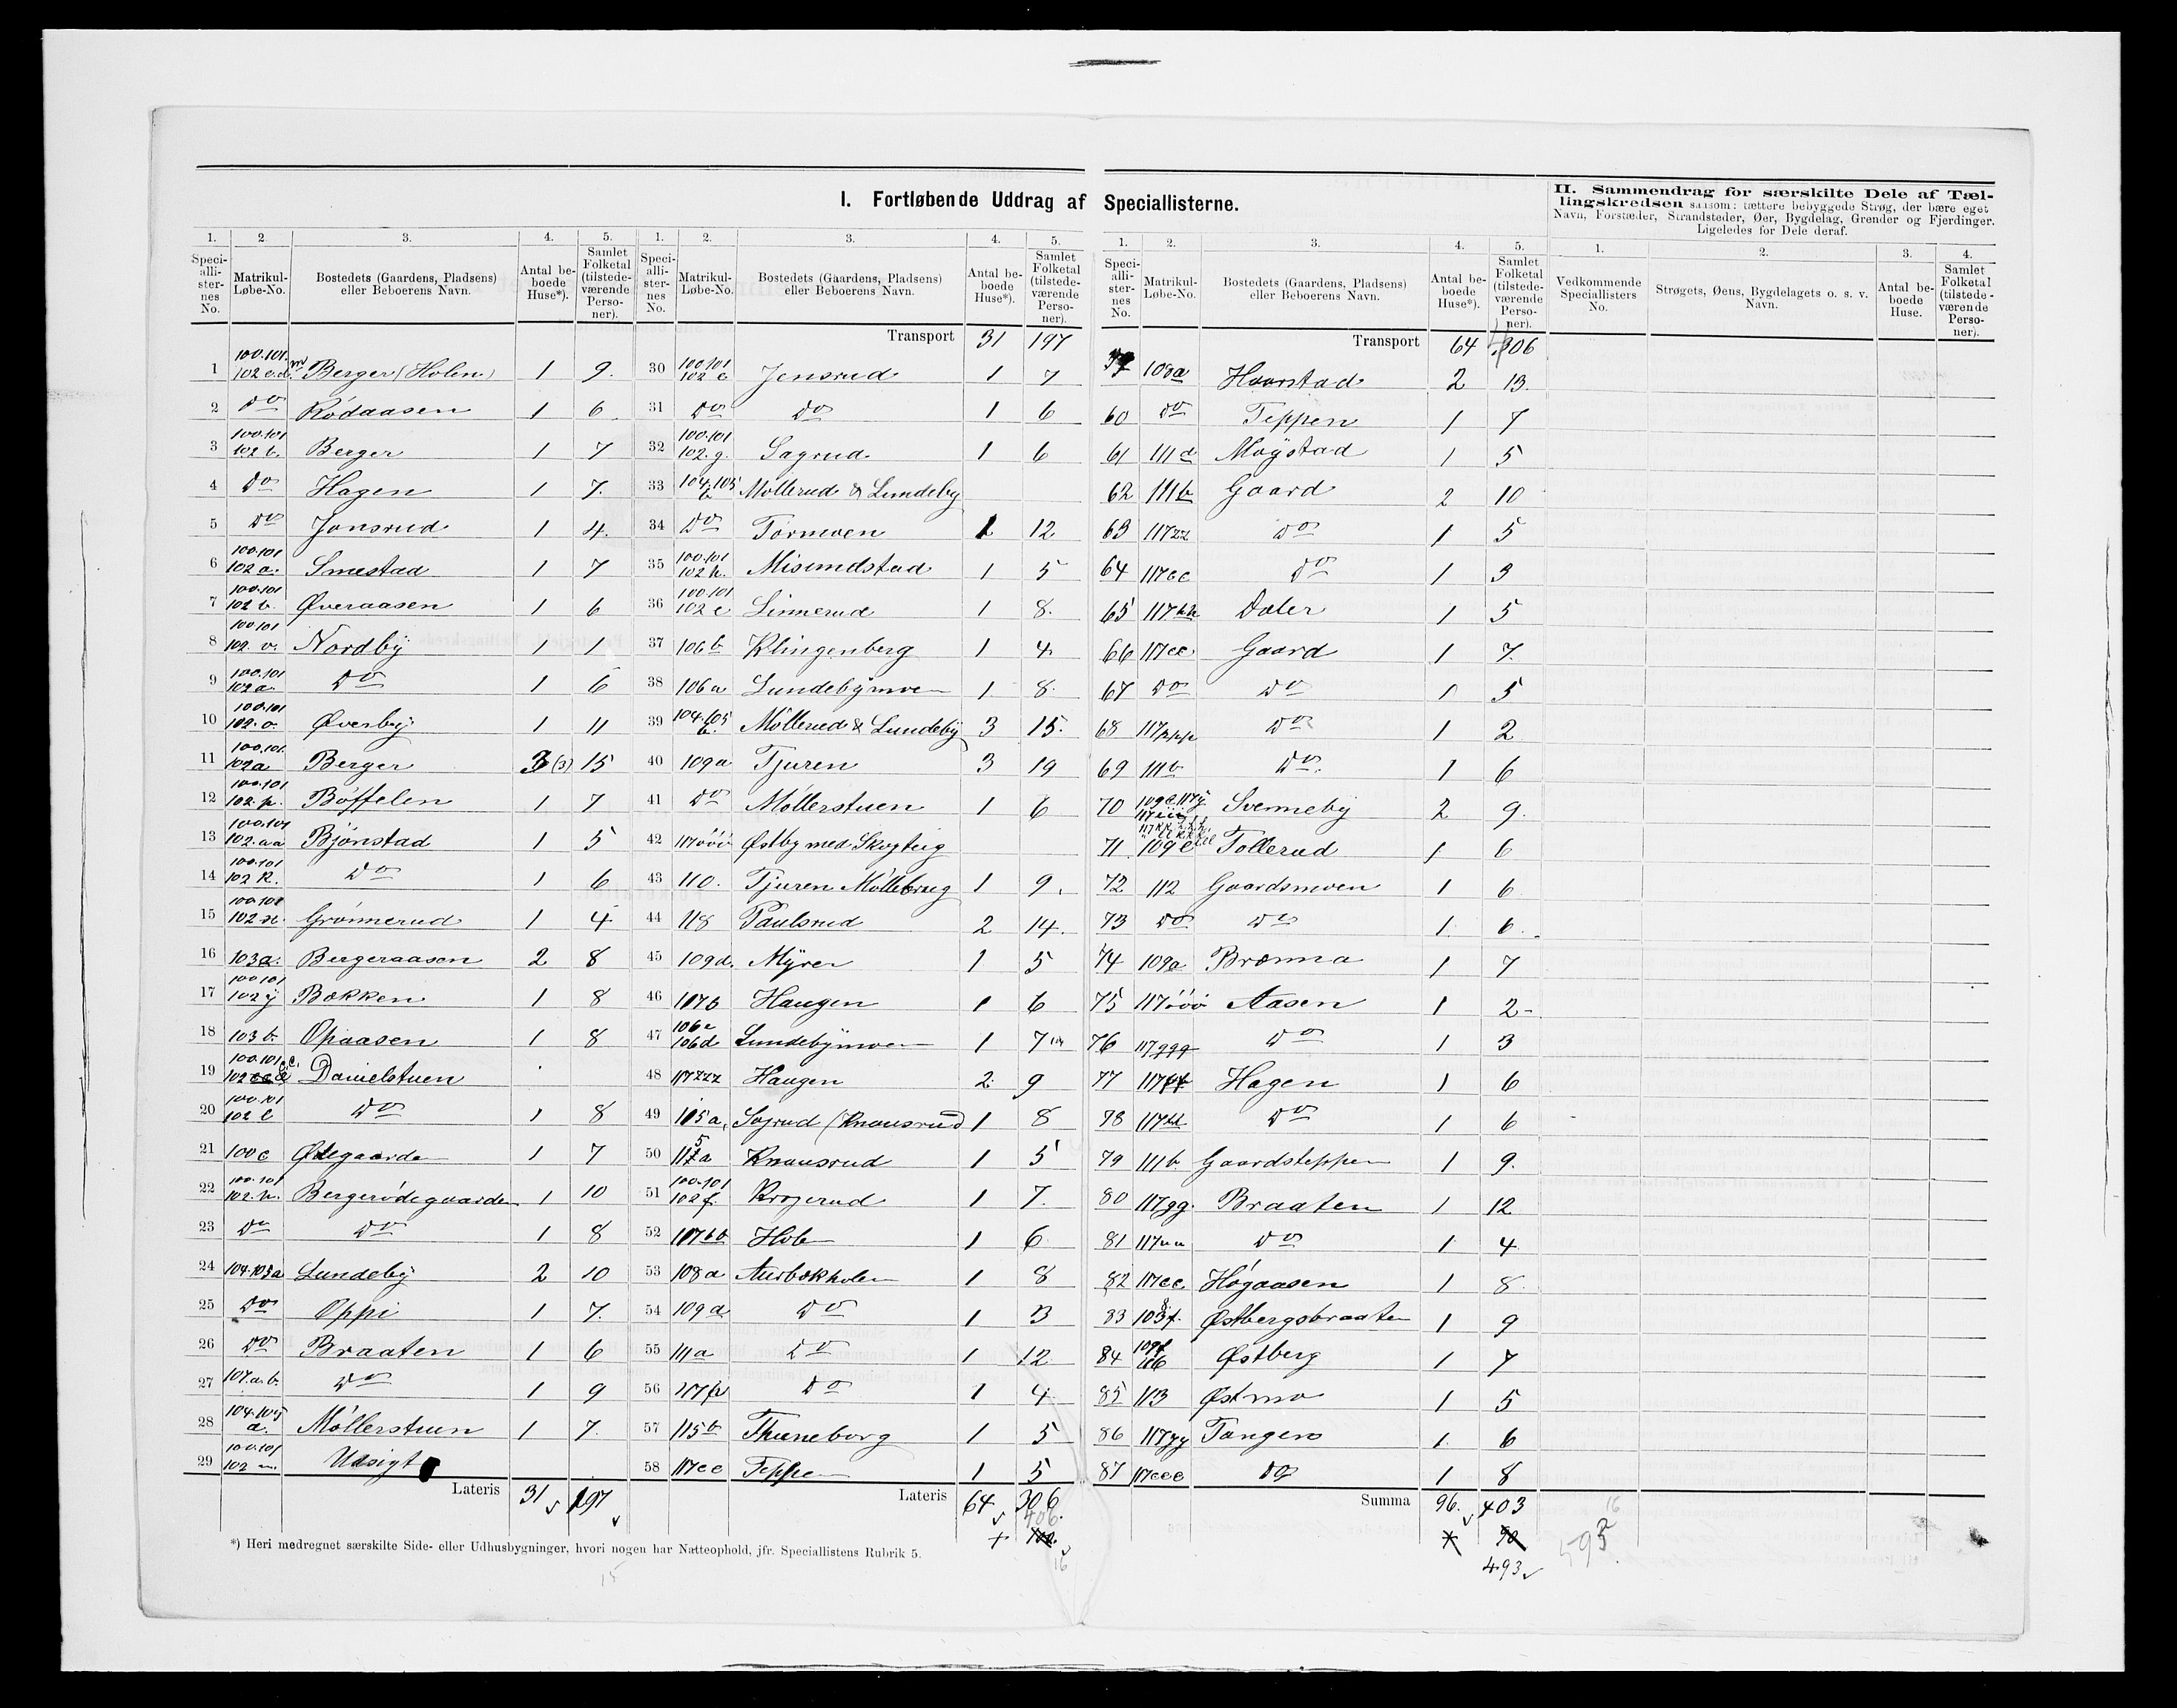 I. Fortløbende Uddrag af Speciallisterne.
II. Sammendrag for særskilte Dele af Tællingskredsen saasom: tættere bebyggede Strøg, der bære eget
Navn, Forstæder, Strandsteder, Øer, Bygdelag, Grender og Fjerdinger.
Ligeledes for Dele deraf.
1. 2. 3. 4. 5.
Speciallisternes No. Matrikul-Løbe-No. Bostedets (Gaardens, Pladsens) eller Beboerens Navn. Antal beboede Huse*). Samlet Folketal (tilstedeværende Personer).
1 100.101. 102 Berger (Holen) 1 9.
2 Do Rödaasen 1 6
3 100.101 102 b. Berger 1 7
4 Do Hagen 1 7.
5 Do Jonsrud 1 4.
6 100.101 102 a. Smestad 1 7
7 100.101 102 b. Øveraasen 1 6
8 100.101 102. v. Nordbÿ 1 1
9 100.101 102 a. Do 1 6
10 100.101 102. o. Øverbÿ 1 11
11 100.101. 102a Berger 3 (3) 15
12 100.101 102. p. Böffelen 1 7
13 100.101 102. aa Bjönstad 1 5
14 100.101 102 k. Do 1 6
15 100.101 102 n. Grönnerud 1 4
16 103a. Bergeraasen 2 8
17 100 101 102 ÿ Bakken 1 8
18 103 b. Opaasen 1 8
19 100.101 Danielstuen
20 100.101 102 l Do 1 8
21 100 c Ødegaarde 1 7
22 100.101 102. h. Bergerödegaarden 1 10
23 Do Do 1 8
24 104.105a Lundebÿ 2 10
25 Do Oppi 1 7.
26 Do Braaten 1 6
27 107.a.b. Do 1 9
28 104.105 a. Möllerstuen 1 7.
29 100.101 102 m. Udsigt
Lateris 31 197
1. 2. 3. 4. 5.
Speciallisternes No. Matrikul-Løbe-No. Bostedets (Gaardens, Pladsens) eller Beboerens Navn. Antal beboede Huse*). Samlet Folketal (tilstedeværende Personer).
Transport 31 197
30 100.101 102 c Jensrud 1 7
31 Do Do 1 6
32 100.101 102. g. Sagrud 1 6
33 104.105 b Möllerud & Lundeby
34 Do Tormoen 1 12
35 100.101 102 h. Misundstad 1 5
36 100.101 102 e Linnerud 1 8.
37 106 b Klingenberg 1 4.
38 106 a Lundebÿmoe 1 8.
39 104.105 b. Möllerud & Lundebÿ 3 15.
40 109a Tjuren 3 19
41 Do Möllerstuen 1 6
42 117ööö Østby med Skogteig
43 110. Tjuren Möllebrug 1 9.
44 118 Paulsrud 2 14.
45 109d. Mÿrer 1 5
46 117b Haugen 1 6
47 106 c 106d Lundebÿmoe 1 7
48 117zzz Haugen 2 9
49 105 a, Sogrud (Knausrud) 1 8
50 115a Knausrud 1 5
51 100.101 102 f. Krogerud 1 7.
52 117bb Hob 1 6
53 108a Aurbakholen 1 8
54 109 d Do 1 3
55 111a Do 1 12
56 Do 1 4
57 115b Thuneborg 1 5
58 117cc Teppen 1 5
Lateris 64 306.
406.
16
1. 2. 3. 4. 5.
Speciallisternes No. Matrikul-Løbe-No. Bostedets (Gaardens, Pladsens) eller Beboerens Navn. Antal beboede Huse*). Samlet Folketal (tilstedeværende Personer).
Transport 64 306
108a Haarstad 2 13.
60 Do Teppen 1 7
61 111d Møystad 1 5
62 111b Gaard 2 10
63 117zz Do 1 5
64 117cc Do 1 3
65 117hh Daler 1 5
66 117cc Gaard 1 7.
67 Do Do 1 5
68 117ppp Do 1 2
69 111b Do. 1 6
70 Svennebÿ 2 9.
71 109e Tollerud 1 6
72 112 Gaardsmoen 1 6
73 Do Do 1 6.
74 109a Brænna 1 7
75 117ööö Aasen 1 2
76 117ggg Do 1 3
77 Hagen 1 6
78 Do 1 6
79 111b Gaardsteppen 1 9.
80 117gg. Braaten 1 12
81 117uu Do 1 4
82 117cc. Högaasen 1 8
83 Østbergsbraaten 1 9
84 109f Østberg 1 7
85 113 Østmo 1 5
86 117yy Tangen 1 6
87 117eee Do 1 8
Summa 96. 403
493
595
16
1. 2. 3. 4.
Vedkommende Speciallisters No. Strøgets, Øens, Bygdelagets o. s. v. Navn. Antal beboede Huse. Samlet Folketal (tilstedeværende Personer).
*) Heri medregnet særskilte Side- eller Udhusbygninger, hvori nogen har Natteophold, jfr. Speciallistens Rubrik 5.
15